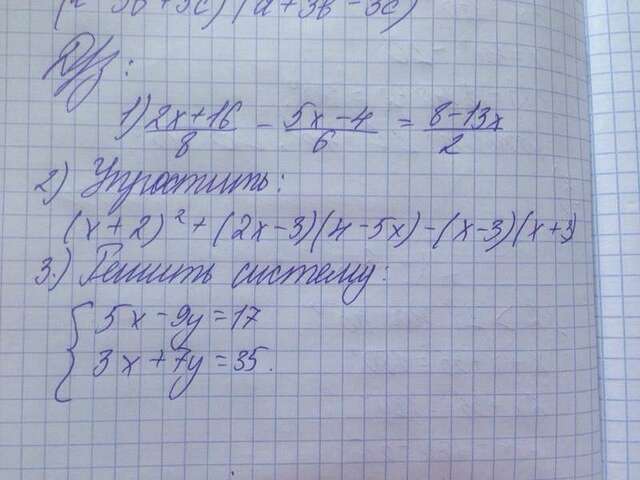 Д/з:
1) (2x+16)/8 - (5x-4)/6 = (8-13x)/2
2) Упростить:
(x+2)² + (2x-3)(4-5x)-(x-3)(x+3)
3.) Решить систему:
{ 5x-9y=17
3x+7y=35.